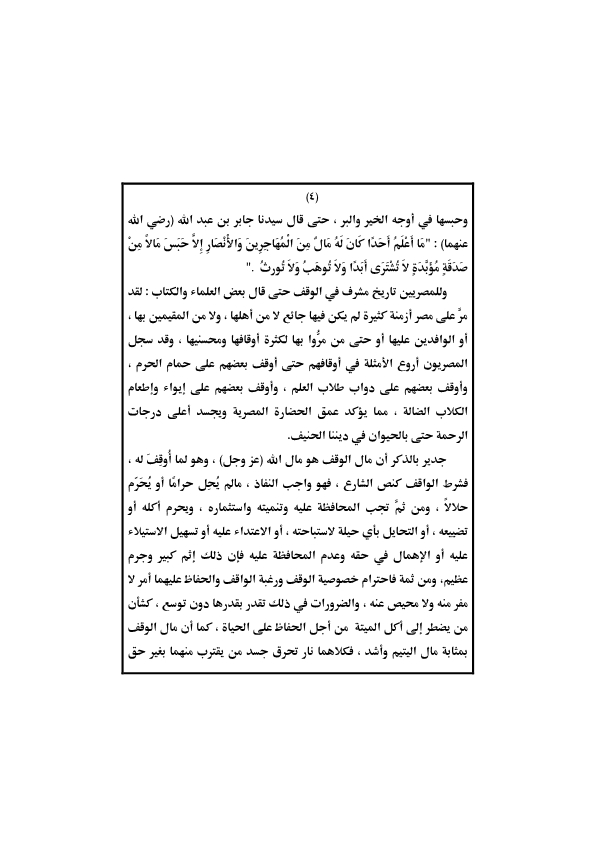 (٤)
وحبسها في أوجه الخير والبر ، حتى قال سيدنا جابر بن عبد الله (رضي الله
عنهما) : "مَا أَعْلَمُ أَحَدًا كَانَ لَهُ مَالٌ مِنَ الْمُهَاجِرِينَ وَالأَنْصَارِ إِلاَّ حَبَسَ مَالاً مِنْ
صَدَقَةٍ مُؤَبَّدَةٍ لاَ تُشْتَرَى أَبَدًا وَلاَ تُوهَبُ وَلاَ تُورثُ ."
وللمصريين تاريخ مشرف في الوقف حتى قال بعض العلماء والكتاب : لقد
مرَّ على مصر أزمنة كثيرة لم يكن فيها جائع لا من أهلها ، ولا من المقيمين بها ،
أو الوافدين عليها أو حتى من مرُّوا بها لكثرة أوقافها ومحسنيها ، وقد سجل
المصريون أروع الأمثلة في أوقافهم حتى أوقف بعضهم على حمام الحرم ،
وأوقف بعضهم على دواب طلاب العلم ، وأوقف بعضهم على إيواء وإطعام
الكلاب الضالة ، مما يؤكد عمق الحضارة المصرية ويجسد أعلى درجات
الرحمة حتى بالحيوان في ديننا الحنيف.
جدير بالذكر أن مال الوقف هو مال الله (عز وجل) ، وهو لما أُوقِفَ له ،
فشرط الواقف كنص الشارع ، فهو واجب النفاذ ، مالم يُحِل حرامًا أو يُحَرّم
حلالاً ، ومن ثمَّ تجب المحافظة عليه وتنميته واستثماره ، ويحرم أكله أو
تضييعه ، أو التحايل بأي حيلة لاستباحته ، أو الاعتداء عليه أو تسهيل الاستيلاء
عليه أو الإهمال في حقه وعدم المحافظة عليه فإن ذلك إثم كبير وجرم
عظيم، ومن ثمة فاحترام خصوصية الوقف ورغبة الواقف والحفاظ عليهما أمر لا
مفر منه ولا محيص عنه ، والضرورات في ذلك تقدر بقدرها دون توسع ، كشأن
من يضطر إلى أكل الميتة من أجل الحفاظ على الحياة ، كما أن مال الوقف
بمثابة مال اليتيم وأشد ، فكلاهما نار تحرق جسد من يقترب منهما بغير حق